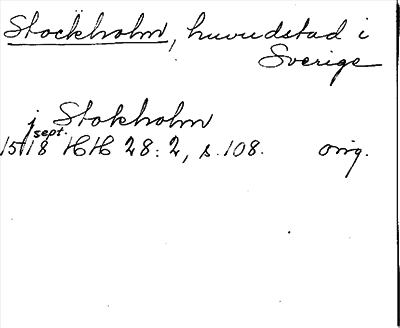 Stockholm, huvudstad i
Sverige
j Stokholm
sept.
1518 HH 28:2, s. 108. orig.